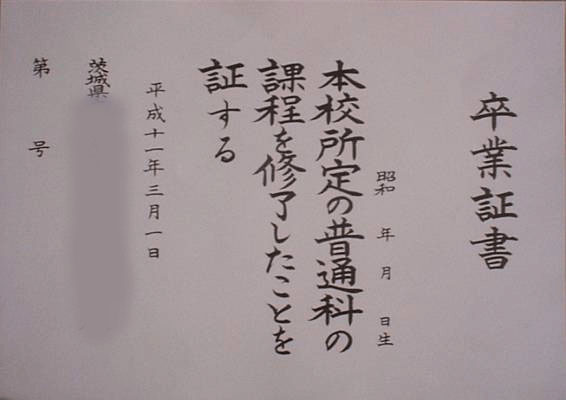 卒業証書
昭和　年　月　日生
本校所定の普通科の
課程を修了したことを
証する
平成十一年三月一日
茨城県
第　号